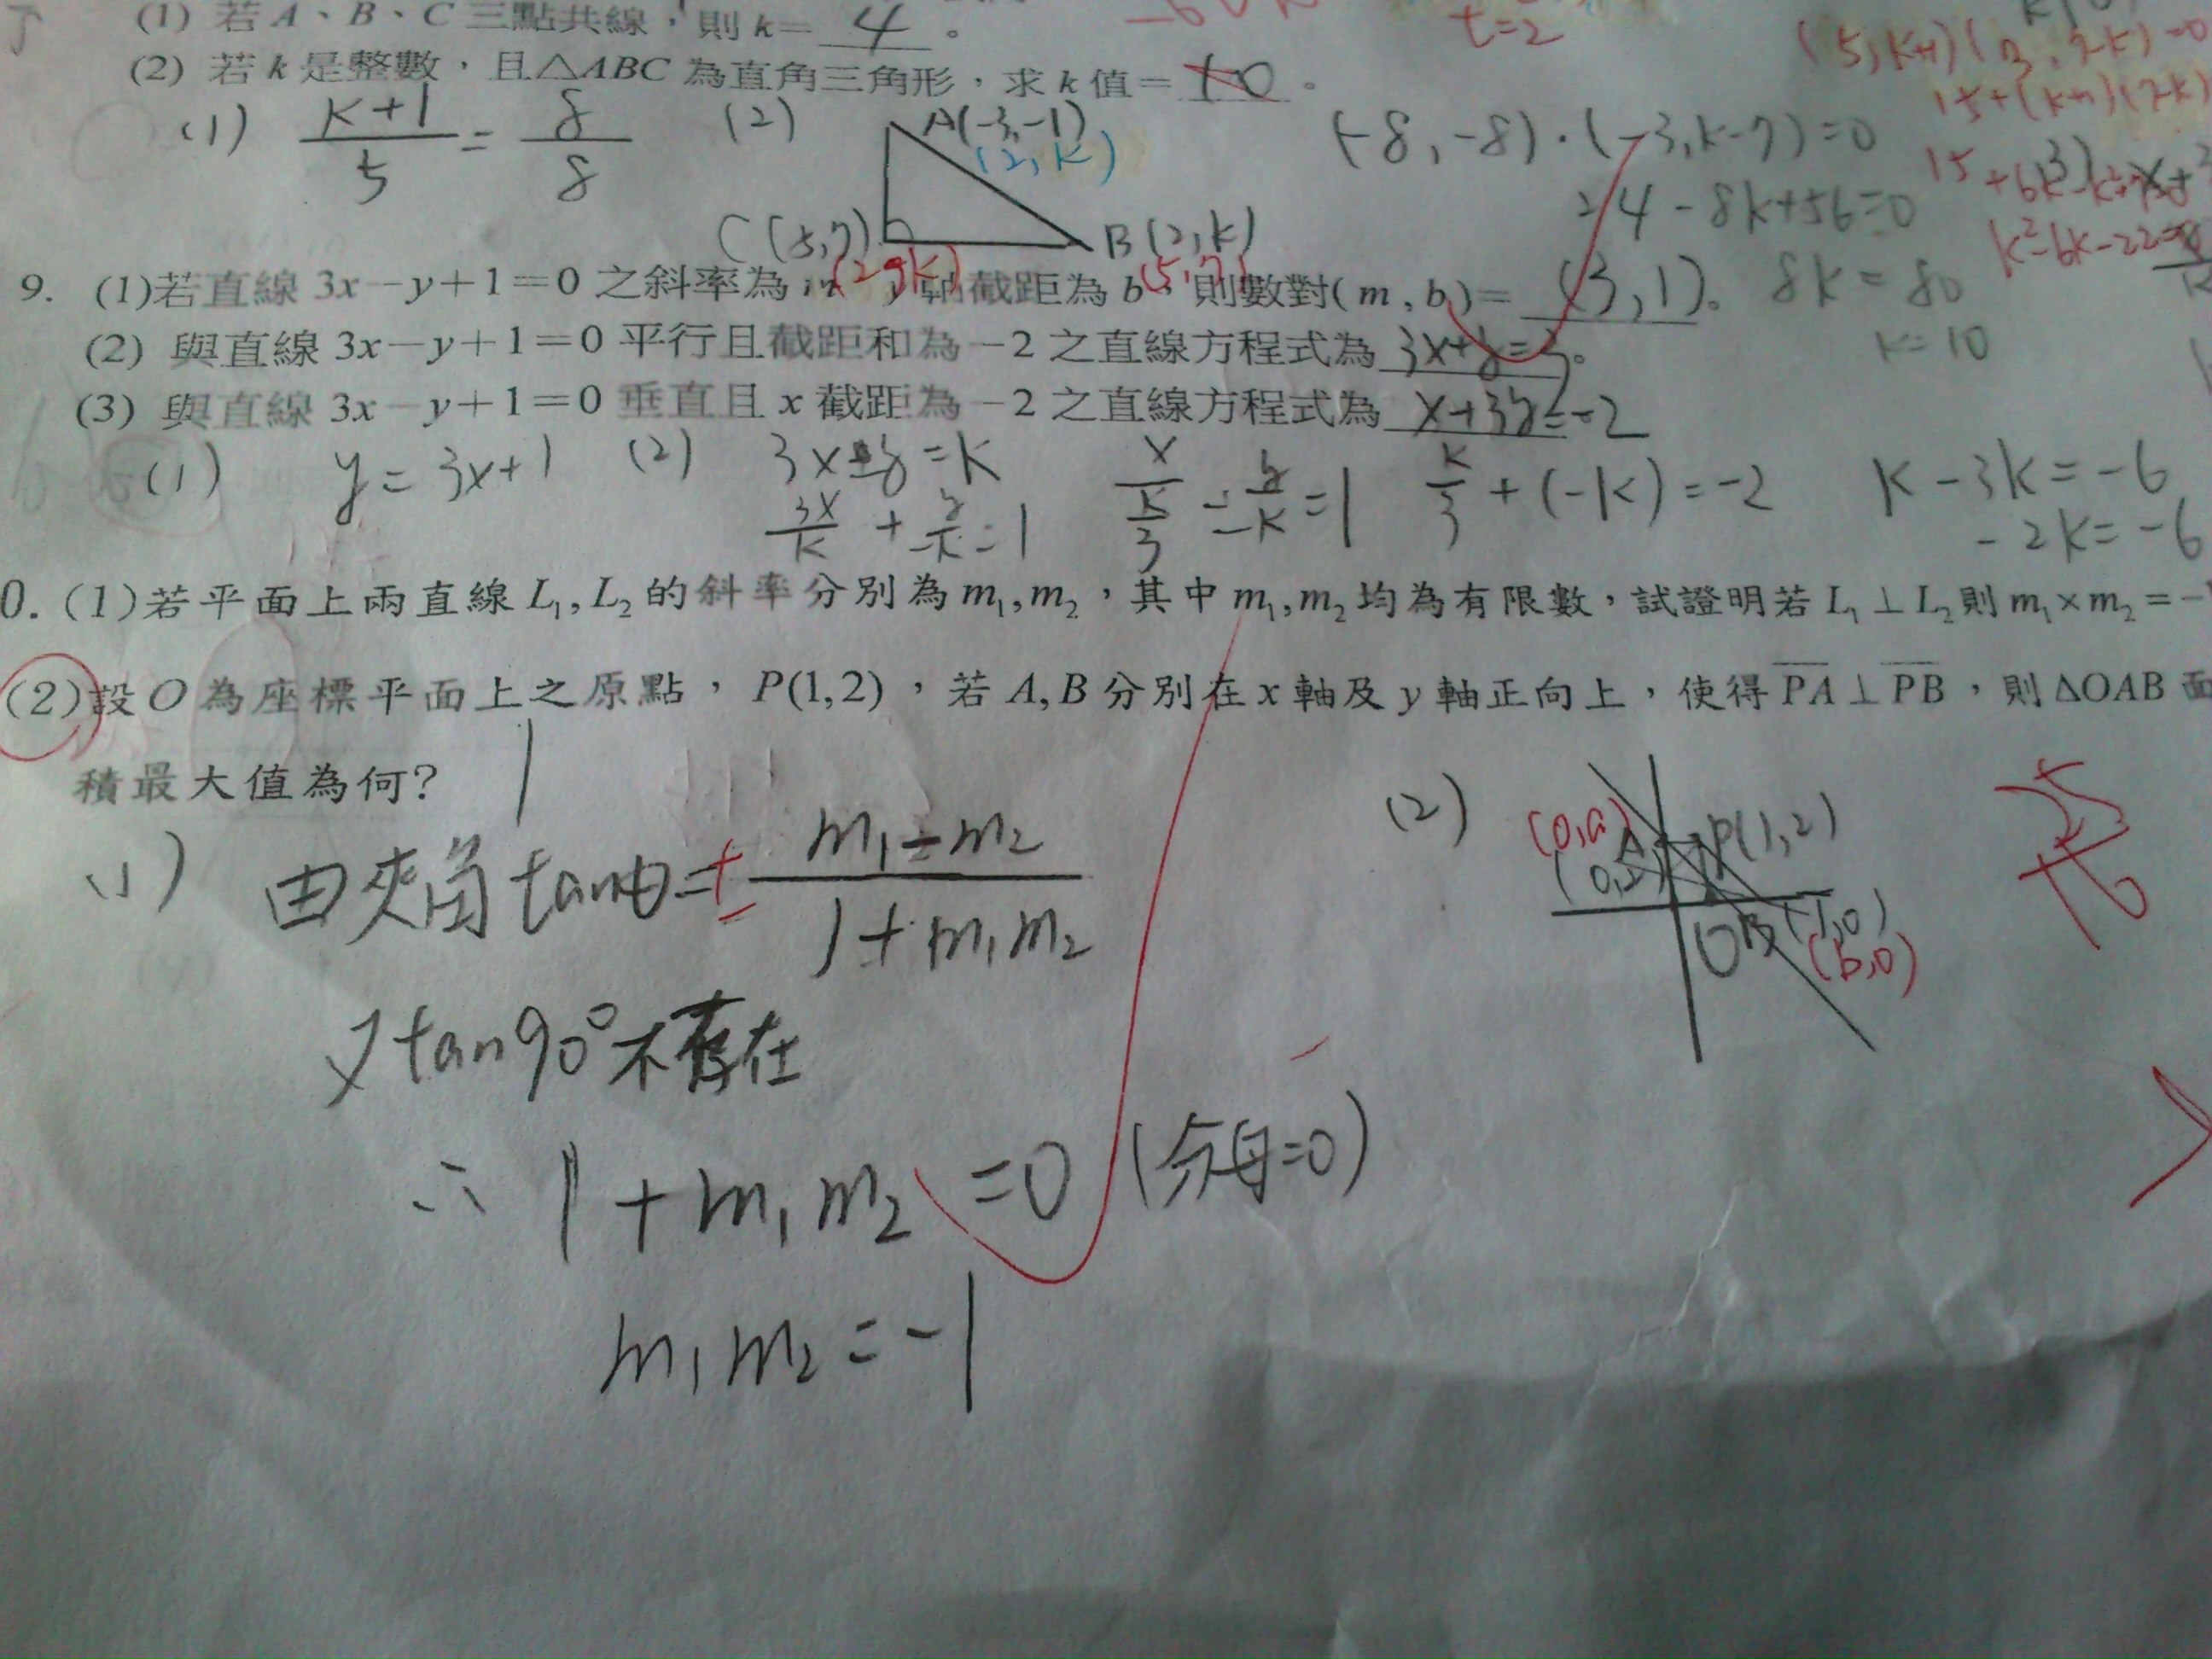 (1) 若 A、B、C 三點共線，則 k= 4 。
t=2
(2) 若 k 是整數，且△ABC 為直角三角形，求 k 值= 10 。
(1) (k+1)/5 = 8/8
(2) A(-3,-1)
(2,k)
C(5,7)
B(2,k)
(5,7)
(-8,-8)·(-3,k-7)=0
24-8k+56=0
8k=80
k=10
k²-6k-22=
9. (1)若直線 3x-y+1=0 之斜率為 m y 軸截距為 b，則數對( m , b )= (3,1)。
(2) 與直線 3x-y+1=0 平行且截距和為-2 之直線方程式為
(3) 與直線 3x-y+1=0 垂直且 x 截距為-2 之直線方程式為 x+3y=-2
(1) y=3x+1
(2) 3x-y=k
3x/k + y/-k = 1
k/3 +(-k)=-2
k-3k=-6
-2k=-6
0. (1)若平面上兩直線 L₁,L₂ 的斜率分別為 m₁,m₂，其中 m₁,m₂ 均為有限數，試證明若 L₁⊥L₂則 m₁×m₂=-
(2)設 O 為座標平面上之原點，P(1,2)，若 A,B 分別在 x 軸及 y 軸正向上，使得 PA⊥PB，則 ΔOAB 面
積最大值為何?
(1) 由夾角 tanθ=± (m₁-m₂)/(1+m₁m₂)
又 tan90°不存在
∴ 1+m₁m₂=0 (分母=0)
m₁m₂=-1
(2)
(0,a)
A
P(1,2)
O
B
(b,0)